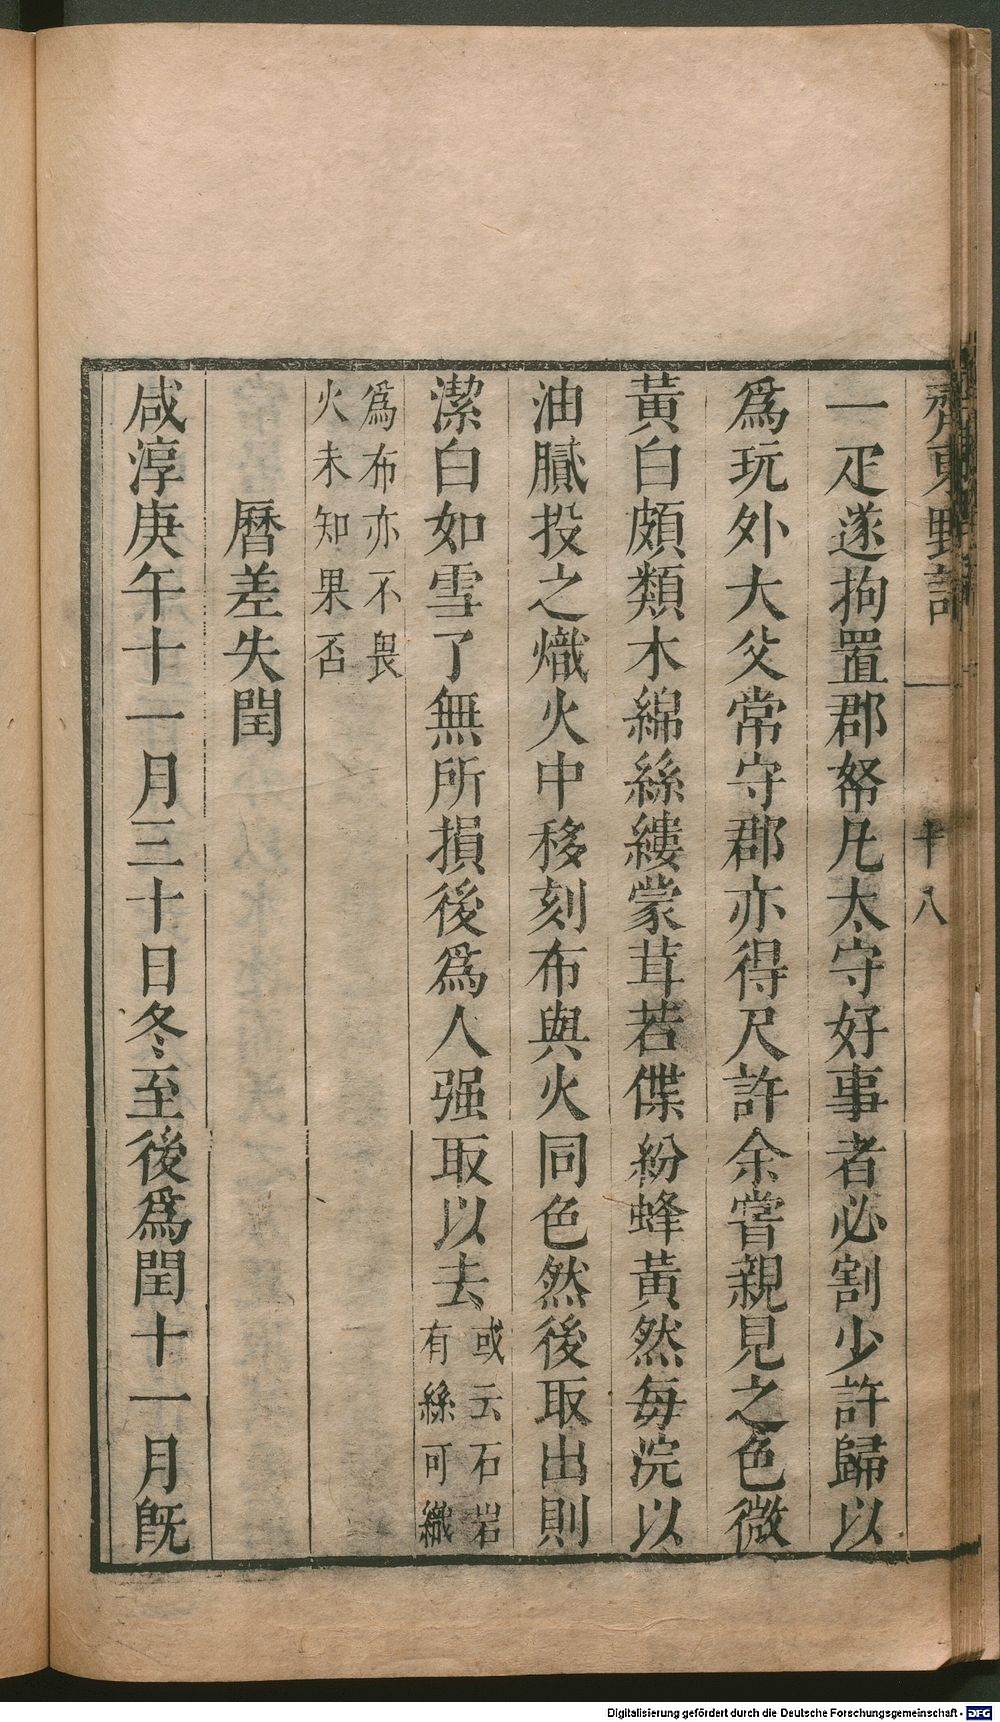 齊東野語
十八
一疋遂拘置郡帑凡太守好事者必割少許歸以
爲玩外大父常守郡亦得尺許余嘗親見之色微
黃白頗類木綿絲縷蒙茸若儠紛蜂黃然每浣以
油膩投之熾火中移刻布與火同色然後取出則
潔白如雪了無所損後爲人强取以去或云石岩有絲可織
爲布亦不畏火未知果否
曆差失閏
咸淳庚午十一月三十日冬至後爲閏十一月旣
Digitalisierung gefördert durch die Deutsche Forschungsgemeinschaft - DFG